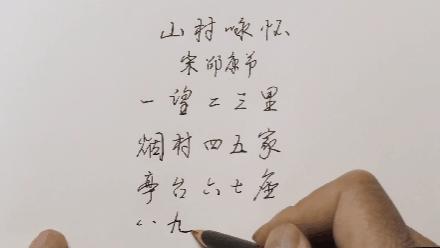 山村咏怀
宋 邵康节
一望二三里
烟村四五家
亭台六七座
八九